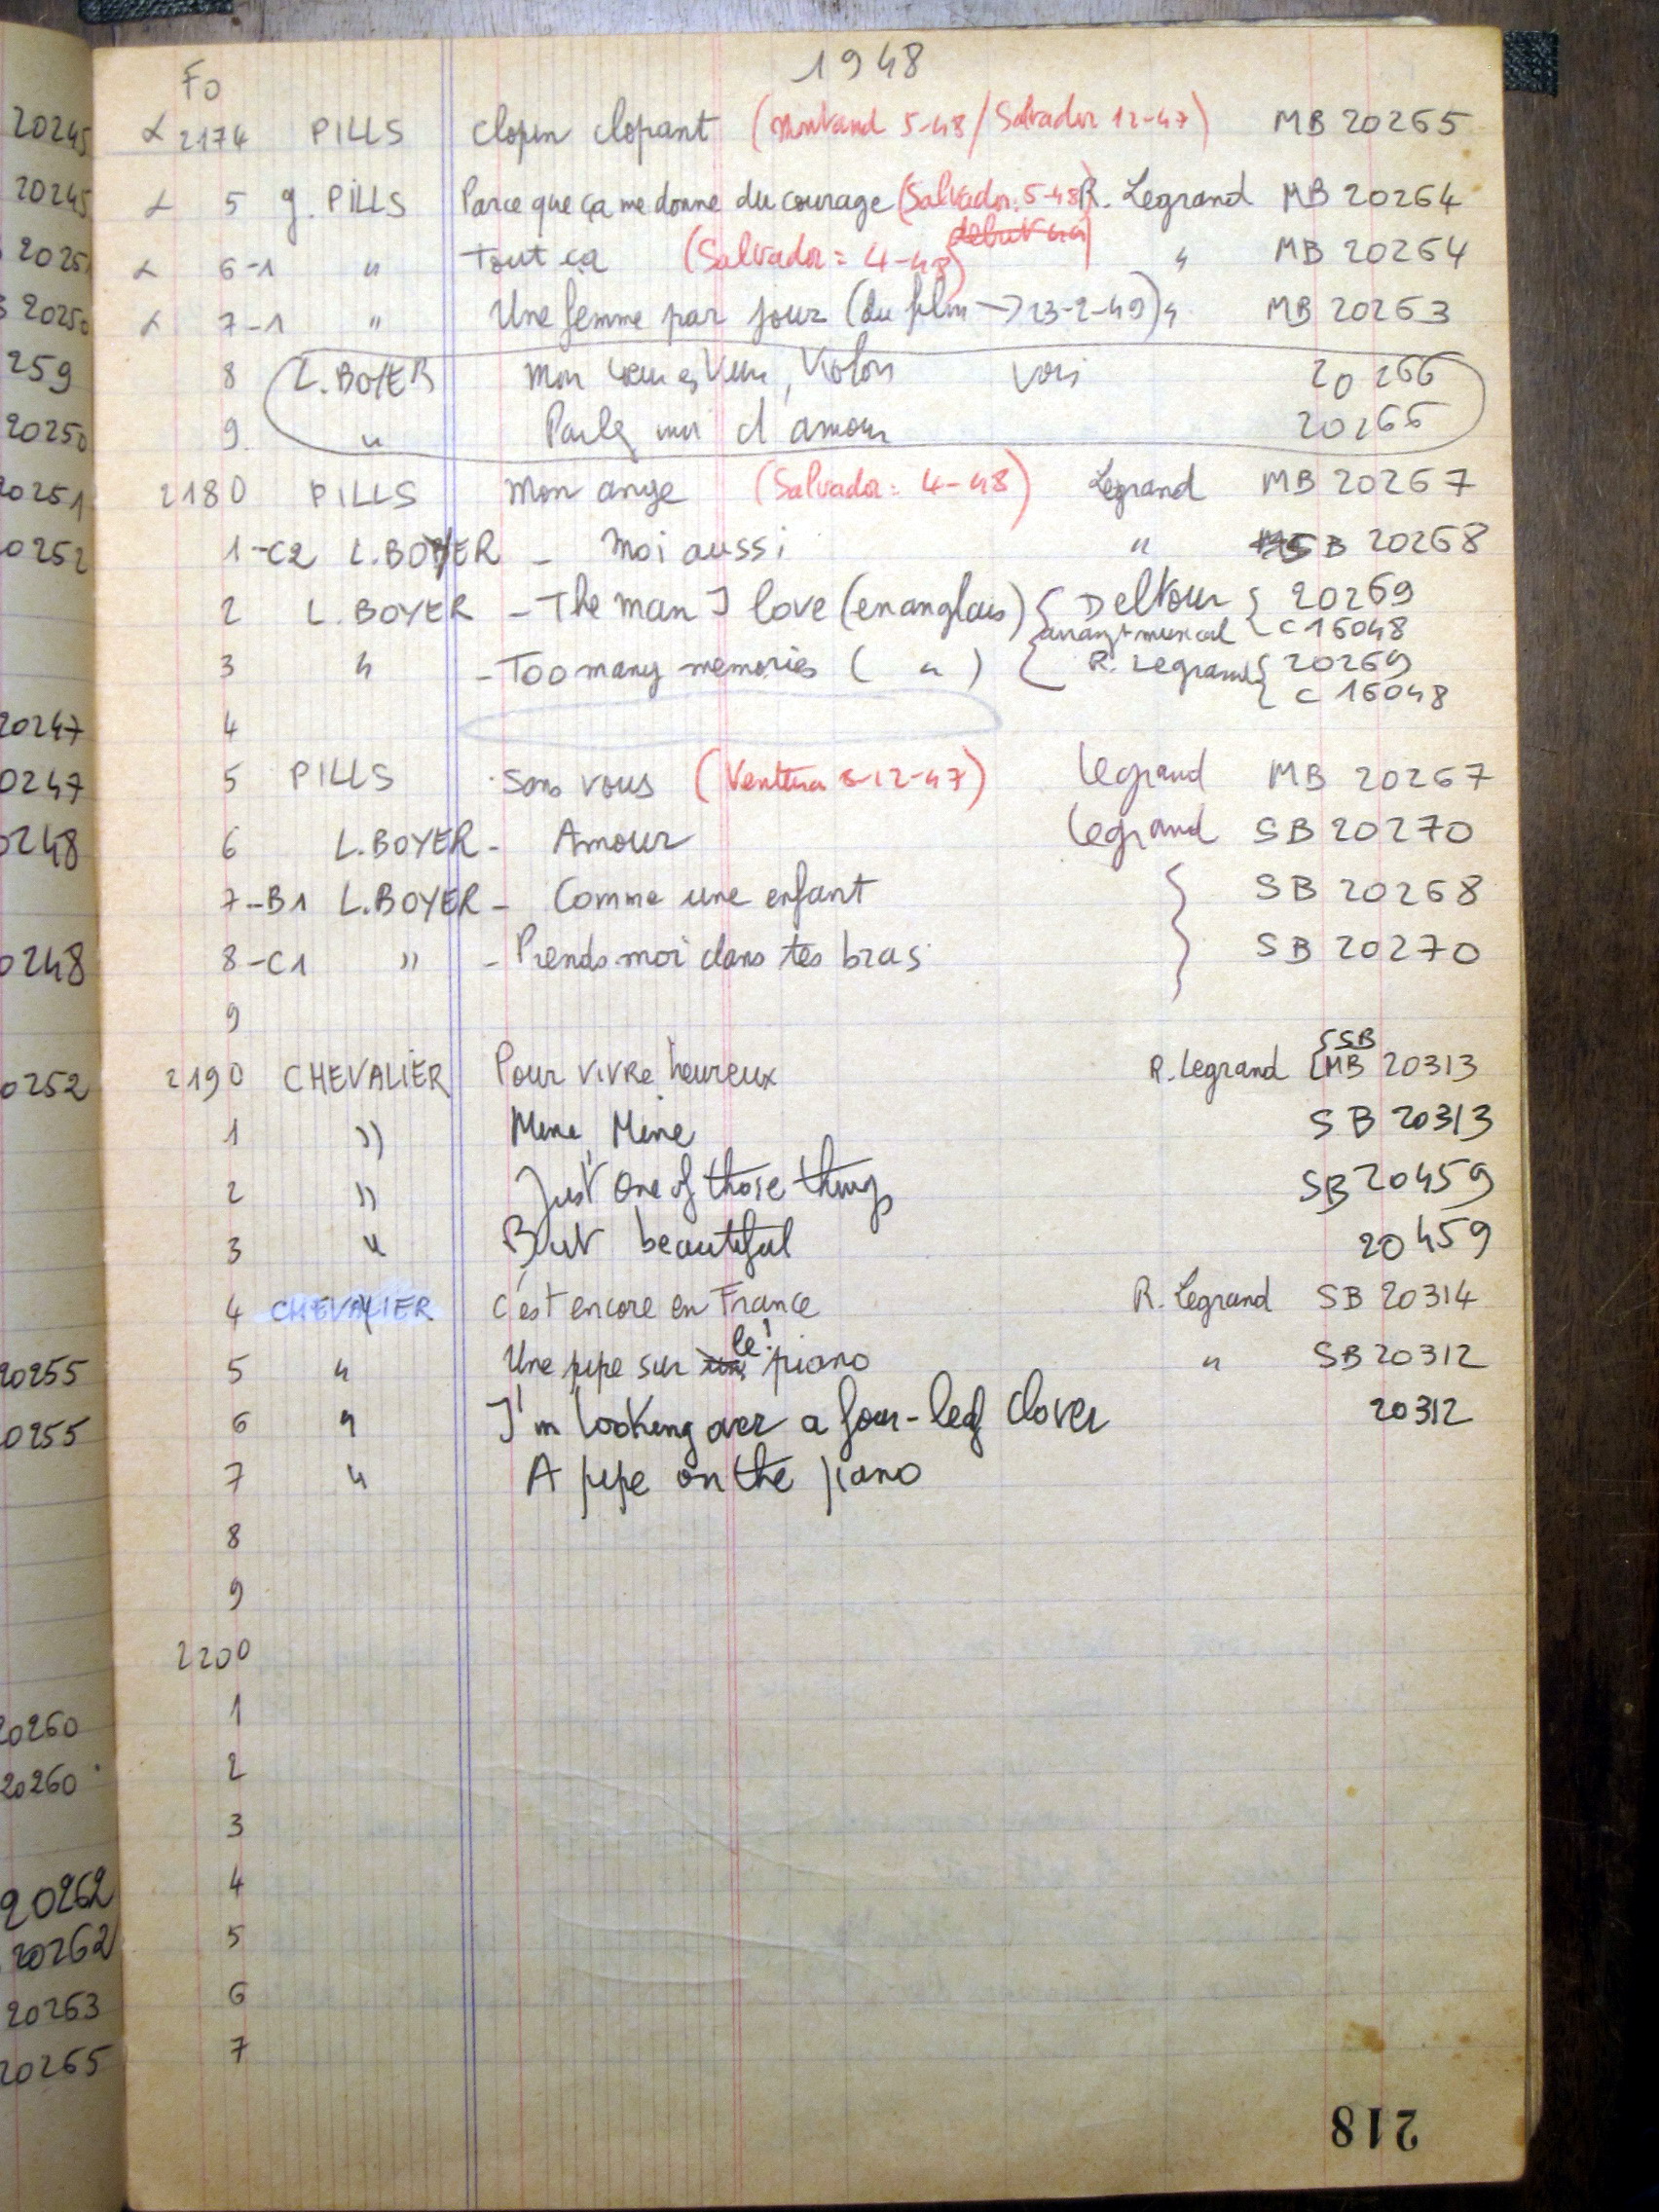 1948
Fo
20245 α 2174 PILLS Clopin clopant (Montand 5-48/Salvador 12-47) MB 20265
20245 α 5 J. PILLS Parce que ça me donne du courage (Salvador: 5-48) R. Legrand MB 20264
2025 α 6-1 " Tout ça (Salvador = 4-48) " MB 20264
20250 α 7-1 " Une femme par jour (du film → 23-2-49) " MB 20263
259 8 L. BOYER Mon coeur es Violon voir 20266
20250 9 " Parlez moi d'amour 20266
20251 2180 PILLS Mon ange (Salvador = 4-48) Legrand MB 20267
0252 1-C2 L. BOYER - Moi aussi " SB 20268
2 L. BOYER - The man I love (en anglais) { Deltour { 20269
arrangt musical { C 16048
3 " - Too many memories ( " ) { R. Legrand { 20269
{ C 16048
20247 4
0247 5 PILLS . Sans vous (Ventura 8-12-47) Legrand MB 20267
0248 6 L. BOYER - Amour Legrand SB 20270
7-B1 L. BOYER - Comme une enfant } SB 20268
0248 8-C1 " - Prends moi dans tes bras } SB 20270
9
{ SB
0252 2190 CHEVALIER Pour vivre heureux R. Legrand { MB 20313
1 " Mine, Mine SB 20313
2 " Just one of those things SB 20459
3 " But beautiful 20459
4 CHEVALIER C'est encore en France R. Legrand SB 20314
20255 5 " Une pipe sur le! piano " SB 20312
0255 6 " I'm looking over a four-leaf clover 20312
7 " A pipe on the piano
8
9
2200
20260 1
20260 2
3
20262 4
20262 5
20263 6
20265 7
218